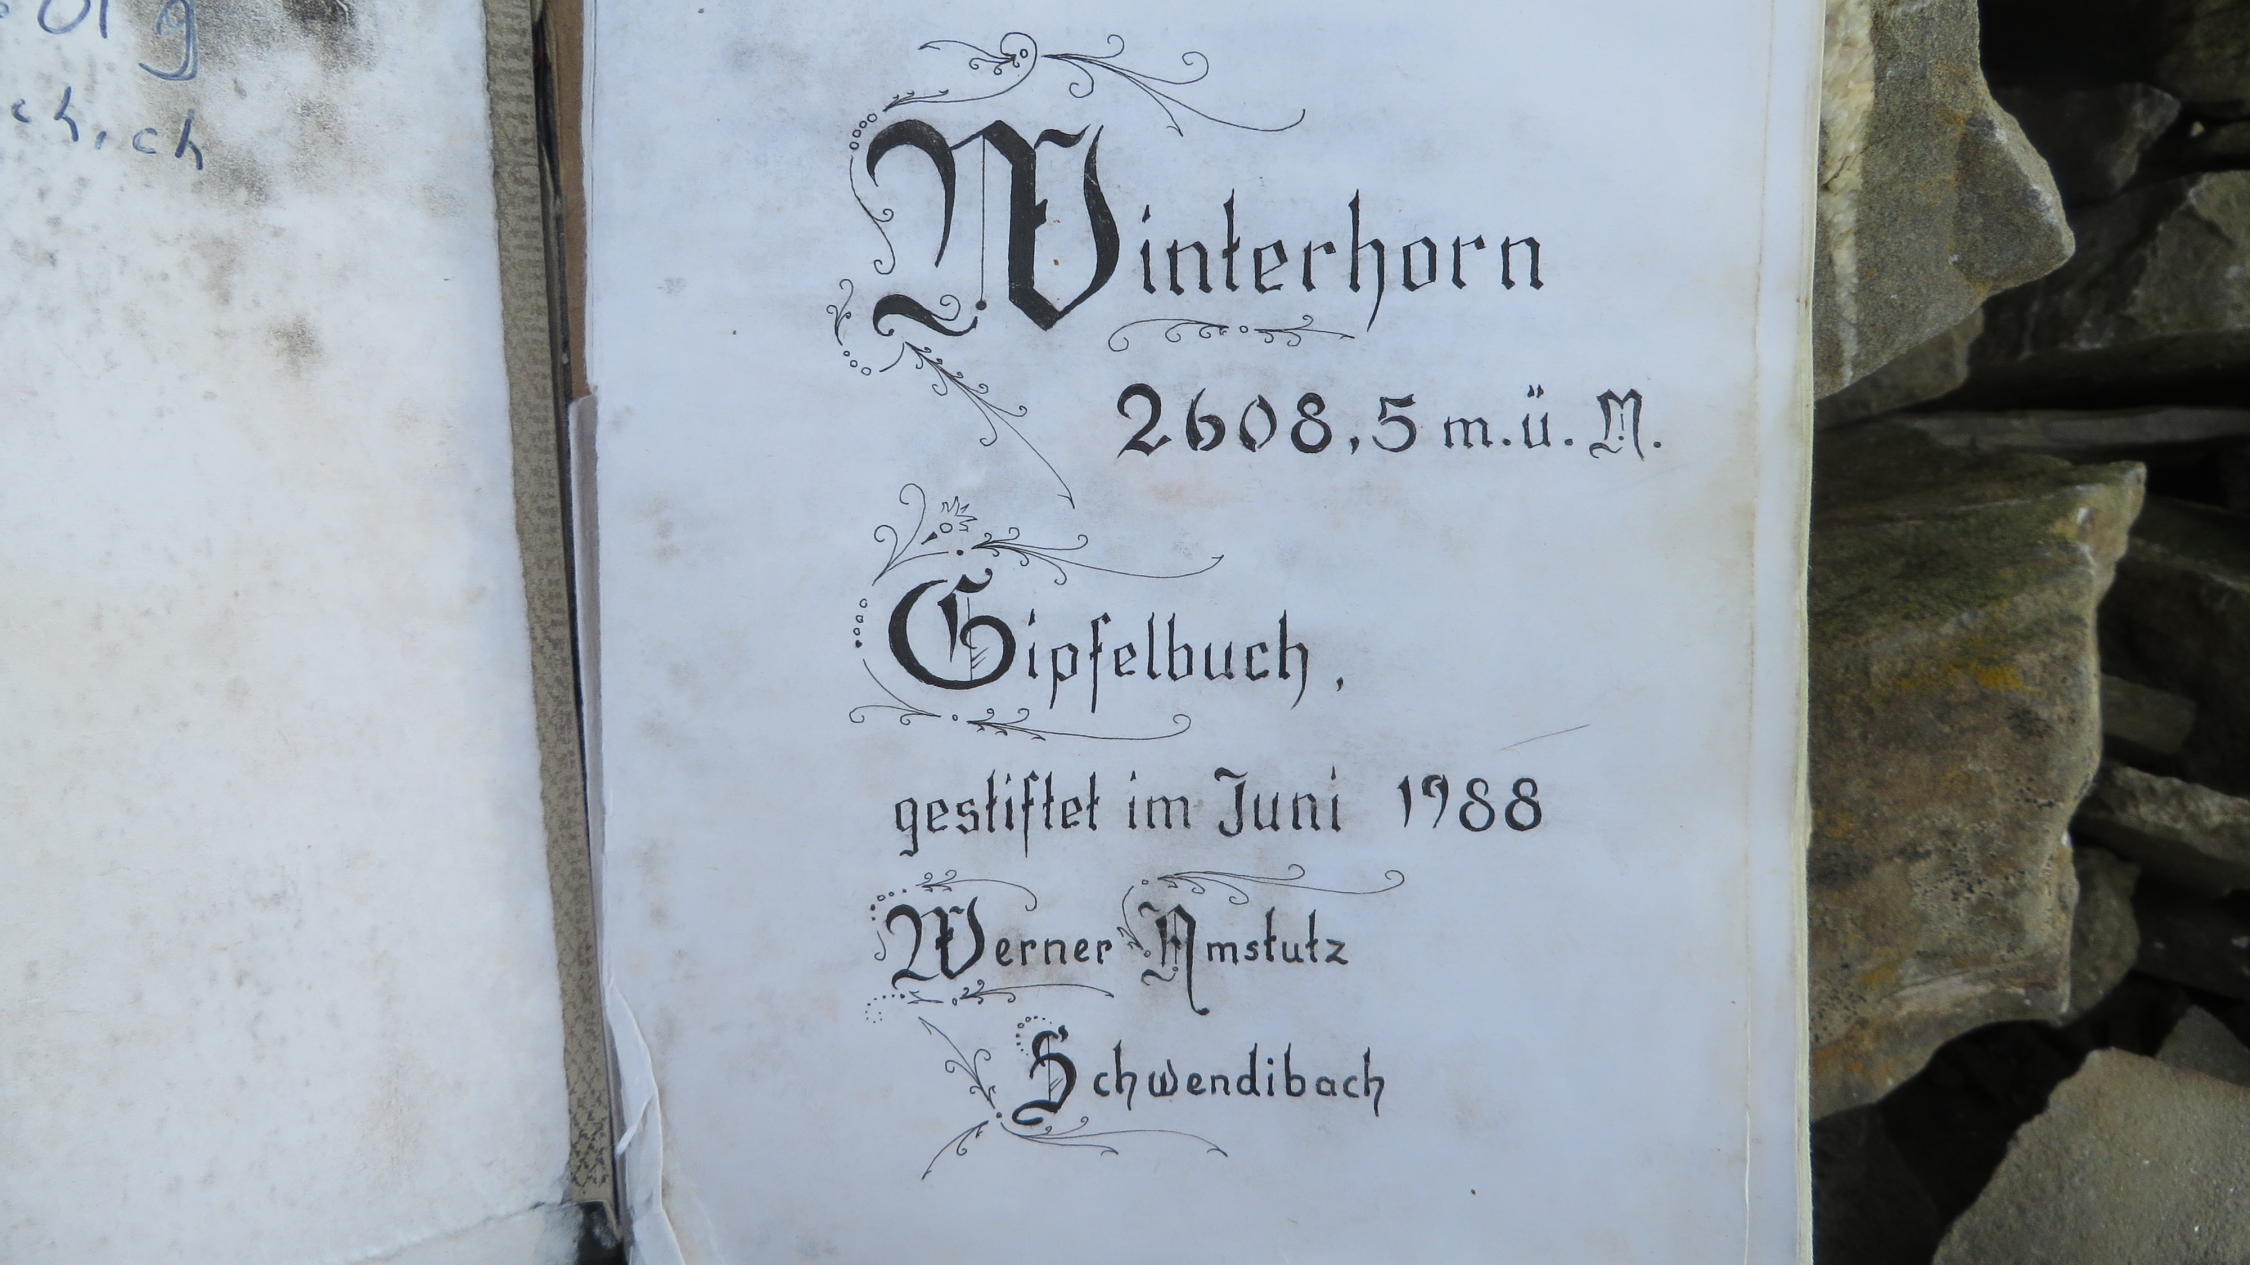 ch.ch
Winterhorn
2608,5 m.ü.M.
Gipfelbuch,
gestiftet im Juni 1988
Werner Amstutz
Schwendibach